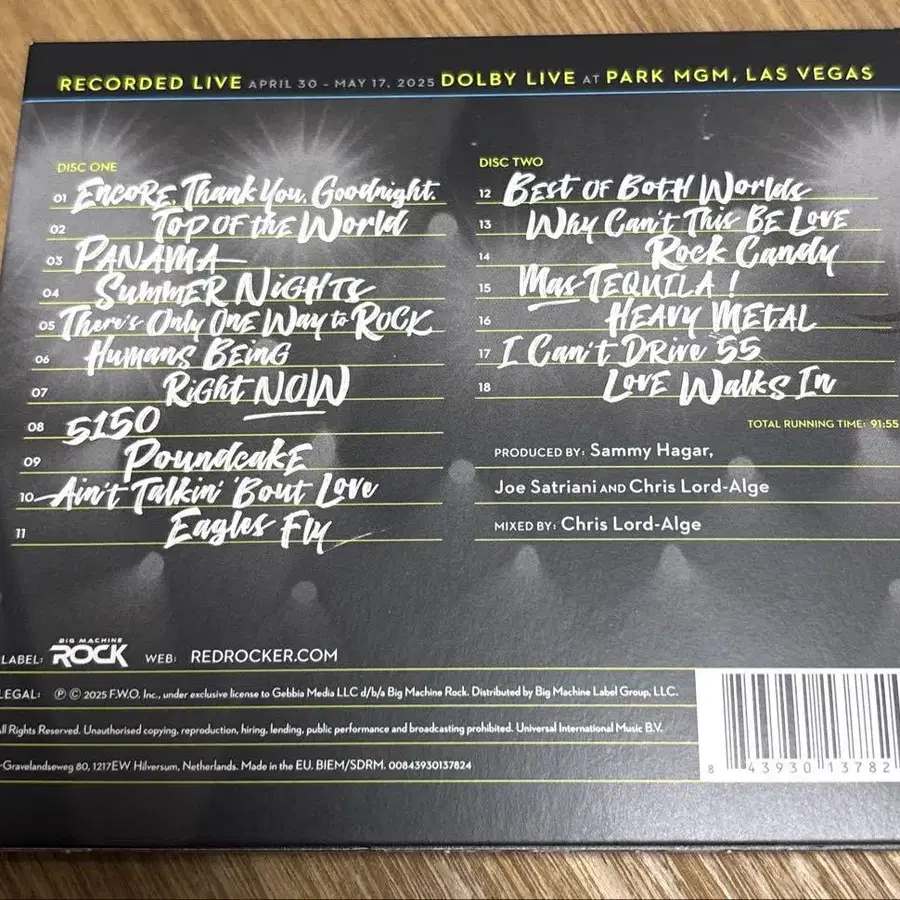 RECORDED LIVE APRIL 30 - MAY 17, 2025 DOLBY LIVE AT PARK MGM, LAS VEGAS
DISC ONE
01 ENCORE, THANK YOU, GOODNIGHT.
02 TOP OF THE WORLD
03 PANAMA
04 SUMMER NIGHTS
05 THERE'S ONLY ONE WAY TO ROCK
06 HUMANS BEING
07 RIGHT NOW
08 5150
09 POUNDCAKE
10 AIN'T TALKIN' 'BOUT LOVE
11 EAGLES FLY
DISC TWO
12 BEST OF BOTH WORLDS
13 WHY CAN'T THIS BE LOVE
14 ROCK CANDY
15 MAS TEQUILA!
16 HEAVY METAL
17 I CAN'T DRIVE 55
18 LOVE WALKS IN
TOTAL RUNNING TIME: 91:55
PRODUCED BY: Sammy Hagar,
Joe Satriani AND Chris Lord-Alge
MIXED BY: Chris Lord-Alge
LABEL: BIG MACHINE ROCK WEB: REDROCKER.COM
LEGAL: ℗ © 2025 F.W.O. Inc., under exclusive license to Gebbia Media LLC d/b/a Big Machine Rock. Distributed by Big Machine Label Group, LLC.
All Rights Reserved. Unauthorised copying, reproduction, hiring, lending, public performance and broadcasting prohibited. Universal International Music B.V.
-Gravelandseweg 80, 1217EW Hilversum, Netherlands. Made in the EU. BIEM/SDRM. 00843930137824
8 43930 13782